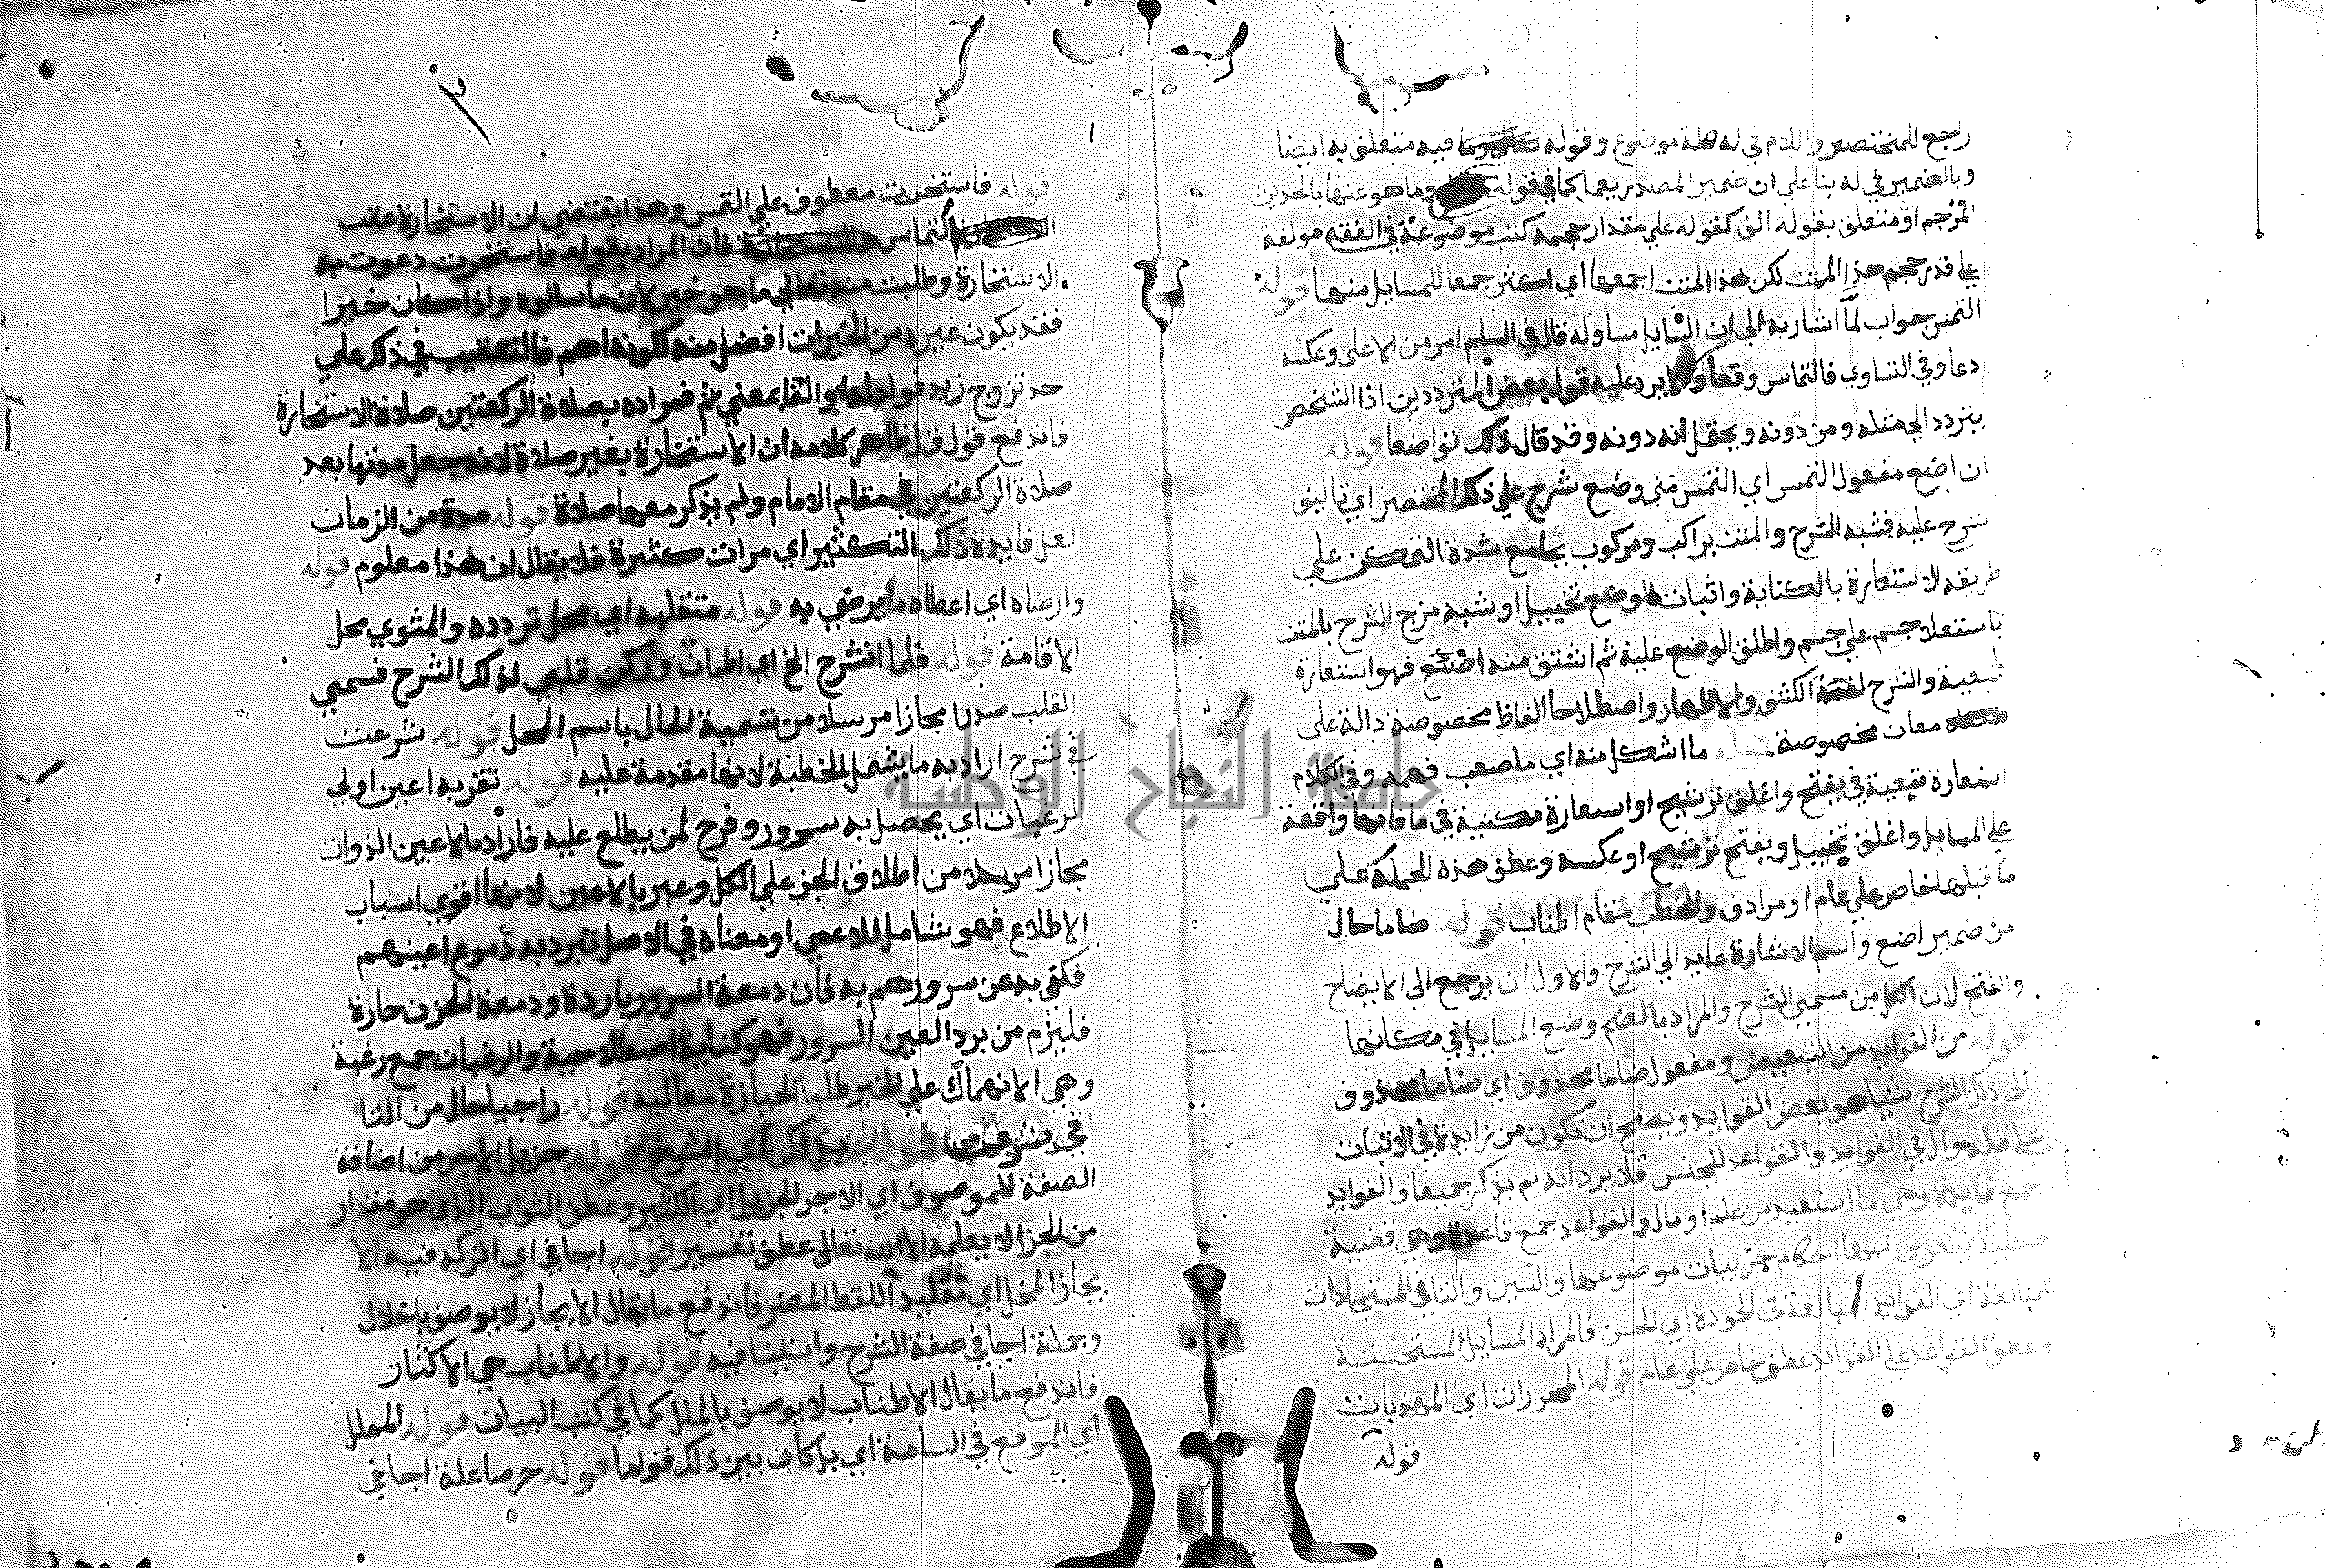 راجع للمختصر واللام في له صلة موضوع وقوله فيه متعلق به ايضا
وبالضمير في له بناعلي ان ضمير المصدر يعمل كما في قوله وما هو عنها بالحديث
المرجم او متعلق بقوله الق كقوله علي مقدار حجمه كنت موضوعة في الفقه مولفة
علي قدر حجم هذا المتن لكن هذا المتن اجمعها اي اكثر جمعا للمسايل منها قوله
التمس جواب لما اشار به الي ان السايل مساو له قال في السلم امر من الاعلي وعكسه
دعا وفي التساوي فالتماس وقعا ولا يرد عليه قوله بعض المترددين اذا الشخص
يتردد الي مثله ومن دونه ويحتمل انه دونه وقد قال ذلك تواضعا قوله
ان اضع مفعول التمس اي التمس مني وضع شرح علي ذلك المختصر اي تاليف
شرح عليه فشبه الشرح والمتن براكب ومركوب بجامع شدة التمكن علي
طريقة الاستعارة بالكناية واثبات الوضع تخييل او شبه مزج الشرح بالمتن
باستعلا جسم علي جسم واطلق الوضع عليه ثم اشتق منه اضع فهو استعارة
تبعية والشرح لغة الكشف والاظهار واصطلاحا الفاظ مخصوصة دالة علي
معان مخصوصة قوله ما اشكل منه اي ما صعب فهمه وفي الكلام
استعارة تبعية في يفتح واغلق ترشيح او استعارة مكنية في ما فانها واقعة
علي المسايل واغلق تخييل ويفتح ترشيح او عكسه وعطف هذه الجملة علي
ما قبلها خاص علي عام او مرادف والخطب مقام اطناب قوله ضاما حال
من ضمير اضع واسم الاشارة عايد الي الشرح والاولي ان يرجع الي الايضاح
والفتح لان الكل من مسمي الشرح والمراد بالضم وضع المسايل في مكانها
قوله من الفوايد من للتبعيض ومفعول ضاما محذوف اي ضاما
الي ذلك الشرح شيا هو بعض الفوايد ويصح ان تكون من زايدة في الاثبات
وال في الفوايد والقواعد للجنس فلا يرد انه لم يذكر جميعا والفوايد
جمع فايدة وهي ما استفيد من علم او مال والقواعد جمع قاعدة وهي قضية
كلية يتعرف منها احكام جزييات موضوعها والسين والتا في المستجادات
اي الفوايد البالغة في الجودة اي الحسن فالمراد المسايل المستحسنة
وعطف القواعد علي الفوايد عطف خاص علي عام قوله المحررات اي المهذبات
قوله
٣
قوله فاستخرت معطوف علي القس وهذا يقتضي ان الاستخارة عقب
التماس فان المراد بقوله فاستخرت دعوت به
الاستخارة وطلبت منه تعالي ما هو خير لان ما سالوه واذا كان خيرا
فقد يكون غيره من الخيرات افضل منه لكونه اهم فالتعقيب في ذكر علي
حد تزوج زيد فولد له والفا بمعني ثم فمراده بصلاة الركعتين صلاة الاستخارة
فاندفع قول ق ل ظاهر كلامه ان الاستخارة بغير صلاة لانه جعل مدتها بعد
صلاة الركعتين في مقام الامام ولم يذكر معها صلاة قوله مدة من الزمان
لعل فايدة ذلك التكثير اي مرات كثيرة فلا يقال ان هذا معلوم قوله
وارضاه اي اعطاه ما يرضي به قوله متقلبه اي محل تردده والمثوي محل
الاقامة قوله فلما انشرح الخ اي اطمان وركن قلبي لذلك الشرح فسمي
القلب صدرا مجازا مرسلا من تسمية الحال باسم المحل قوله شرعت
في شرح اراد به ما يشمل الخطبة لانها مقدمة عليه قوله تقر به اعين اولي
الرغبات اي يحصل به سرور وفرح لمن يطلع عليه فاراد بالاعين الذوات
مجازا مرسلا من اطلاق الجز علي الكل وعبر بالاعين لانها اقوي اسباب
الاطلاع فهو شامل للاعمي او معناه في الاصل تبرد به دموع اعينهم
فكني به عن سرورهم به فان دمعة السرور باردة ودمعة الحزن حارة
فيلزم من برد العين السرور فهو كناية اصطلاحية والرغبات جمع رغبة
وهي الانهماك علي الخير طلبا لحيازة معاليه قوله راجيا حال من التا
في شرعت جزيل الاجر من اضافة
الصفة للموصوف اي الاجر الجزيل اي الكثير وعطف الثواب الذي هو مقدار
من الجزا لا يعلمه الا الله تعالي عطف تفسير قوله اجافي اي اترك فيه الا
يجاز المخل اي تقليل اللفظ المضر فاندفع ما يقال الايجاز لا يوصف باخلال
وجملة اجافي صفة الشرح واستينافيه قوله والاطناب هي الاكثار
فاندفع ما يقال الاطناب لا يوصف بالملل كما في كتب البيان قوله الممل
اي الموقع في السامة اي بل كان بين ذلك قواما قوله حرصا علة اجافي